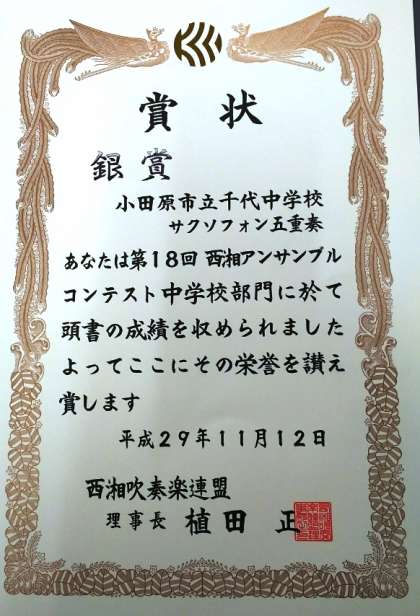 賞状
銀賞
小田原市立千代中学校
サクソフォン五重奏
あなたは第18回 西湘アンサンブル
コンテスト中学校部門に於て
頭書の成績を収められました
よってここにその栄誉を讃え
賞します
平成29年11月12日
西湘吹奏楽連盟
理事長 植田 正